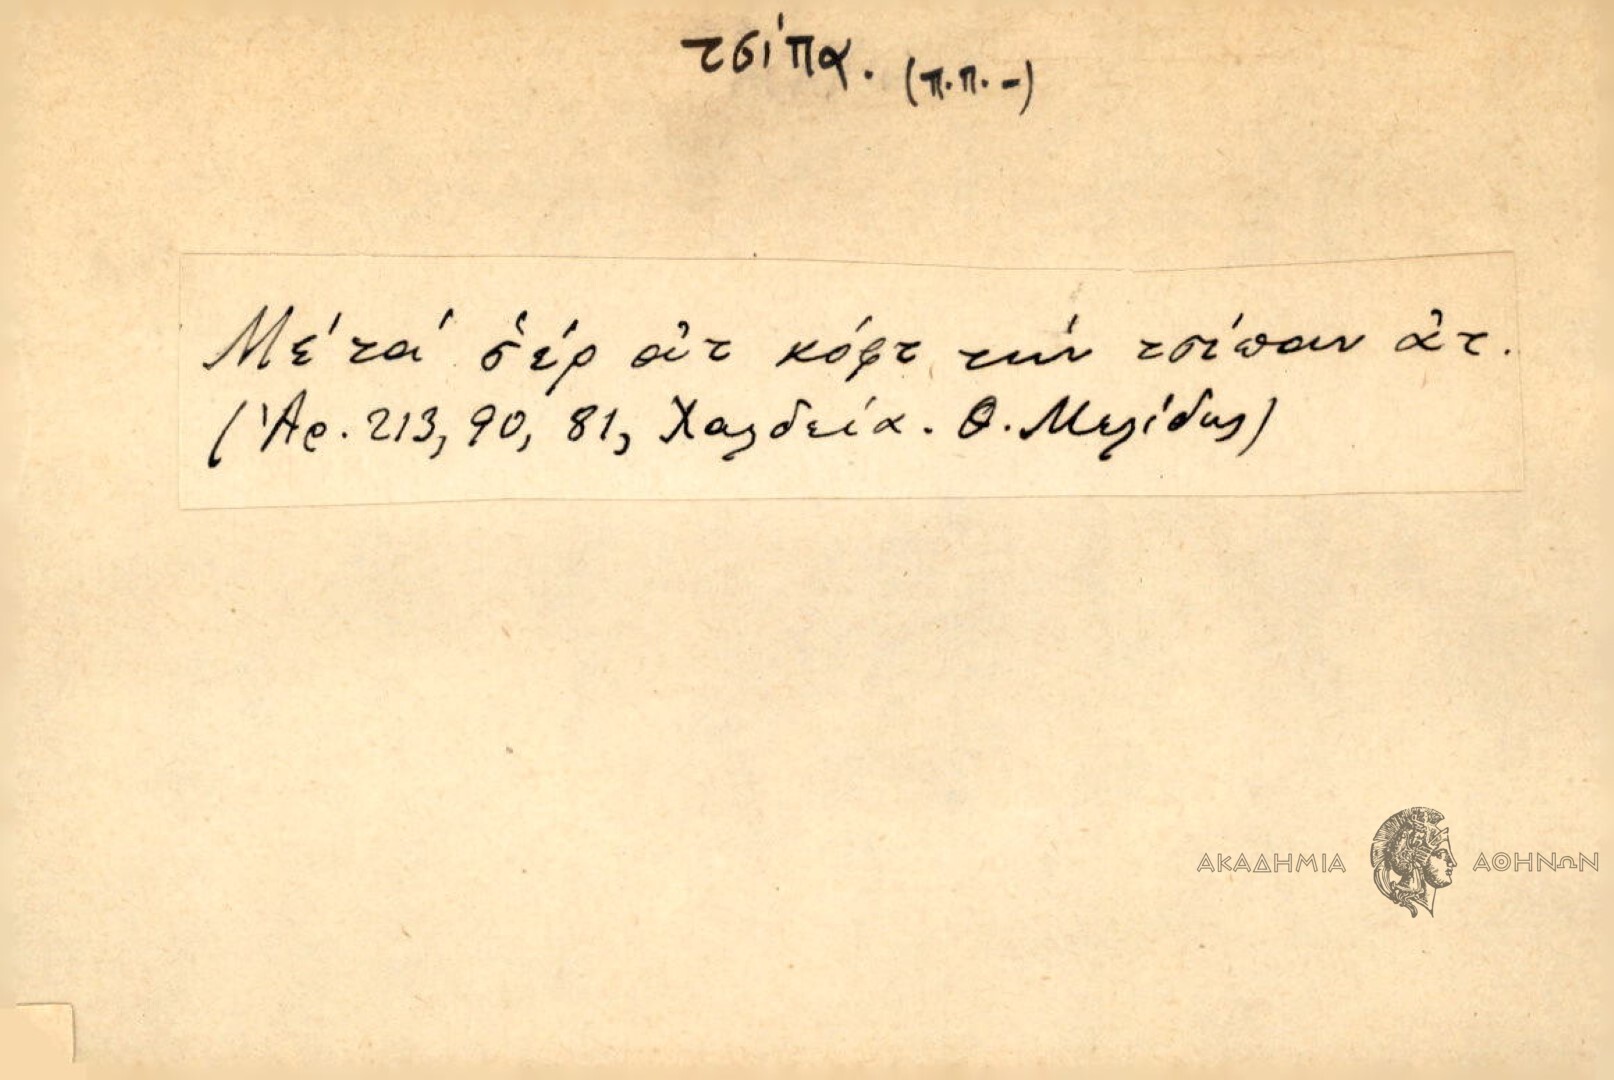 τσίπα. (π.π. -)
Μέ τά σ̌έρ ἀτ κόφτ τήν τσίπαν ἀτ.
(Ἀρ. 213, 90, 81, Χαλδεία. Θ. Μελίδης)
ΑΚΑΔΗΜΙΑ ΑΘΗΝΩΝ